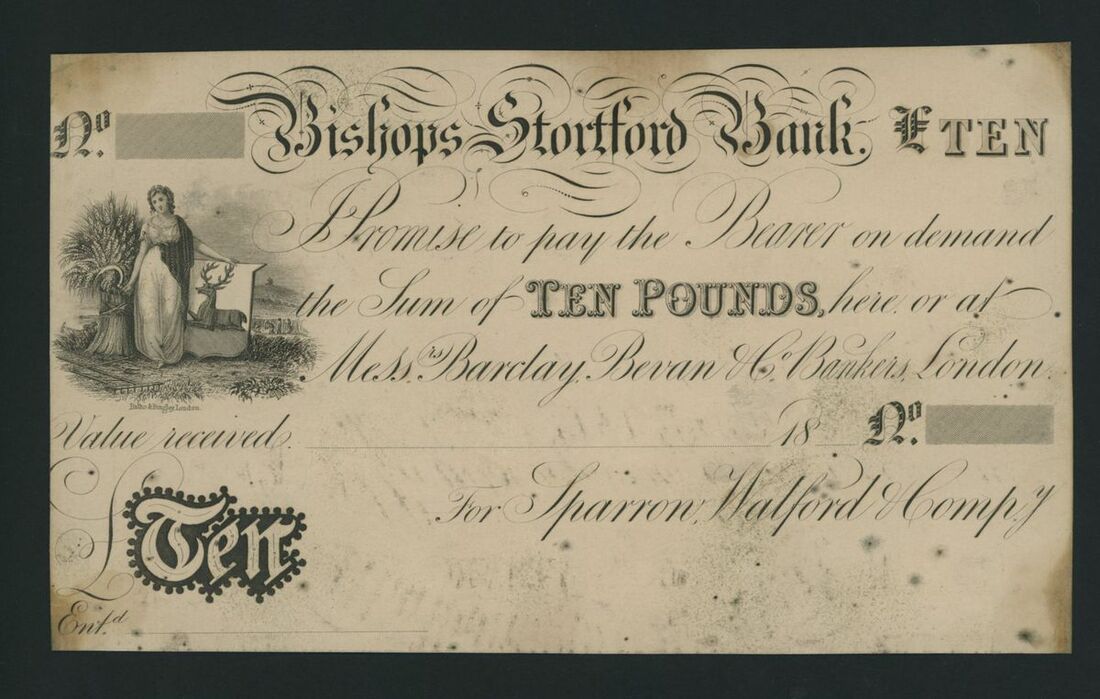 No. Bishops Stortford Bank. £ TEN
I Promise to pay the Bearer on demand
the Sum of TEN POUNDS, here or at
Messrs Barclay, Bevan & Co. Bankers, London.
Value received. 18 No.
For Sparrow, Walford & Compy
£ Ten
Entd.